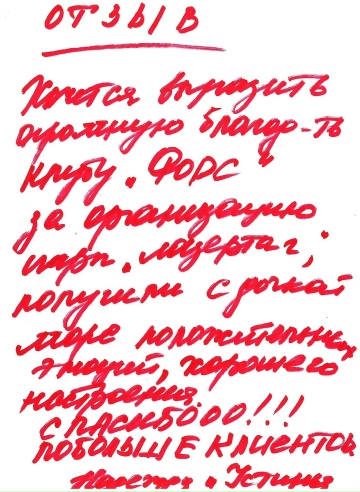 ОТЗЫВ
Хочется выразить
огромную благод-ть
клубу „ФОРС“
за организацию
игры „лазертаг“,
получили с дочкой
море положительных
эмоций, хорошего
настроения.
СПАСИБООО!!!
ПОБОЛЬШЕ КЛИЕНТОВ
и Устинья